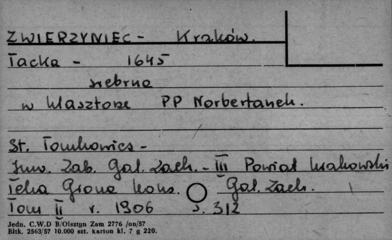 ZWIERZYNIEC - Kraków.
Tacka - 1645
srebrna
w klasztorze PP Norbertanek.
St. Tomkowicz -
Inw. Zab. Gal. Zach. - III Powiat Krakowski
Teka Grona Kons. Gal. Zach.
Tom II r. 1906 s. 312
Jedn. C.W.D B/Olsztyn Zam 2776 /on/57
Bltk. 2563/57 10.000 szt. karton kl. 7 g 220.